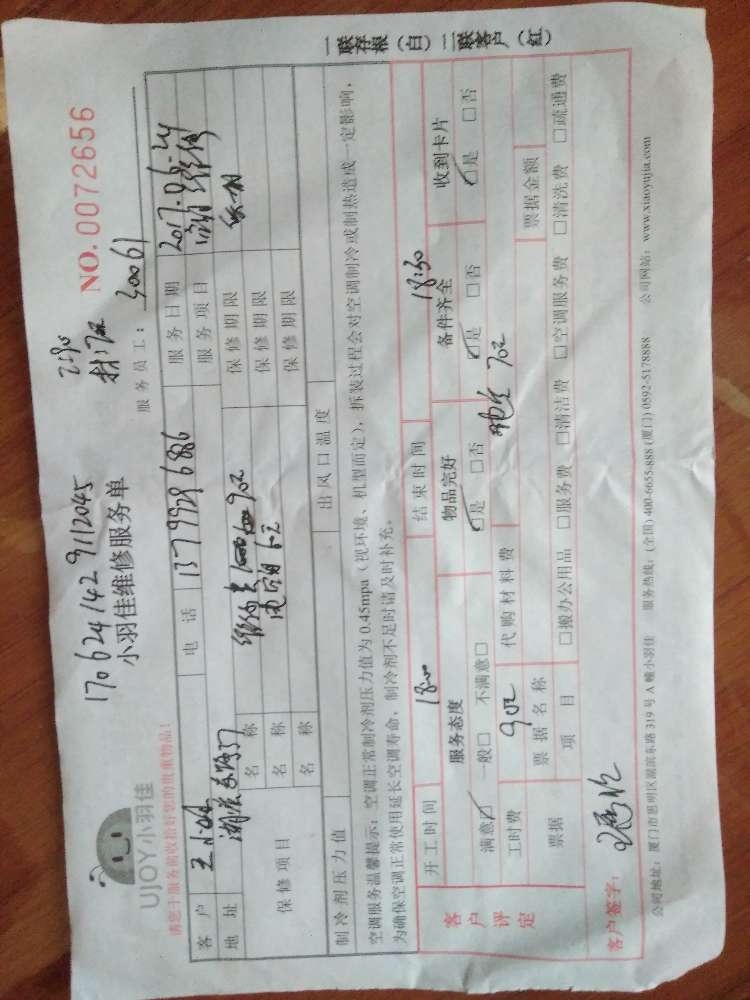 一联存根（白）二联客户（红）
NO. 0072656
170624142 9112045
小羽佳维修服务单
服务员工：30061
UJOY小羽佳
请您于服务前收拾好您的贵重物品！
客户 电话 13779929686 服务日期 2017.06.24
地址 服务项目
保修项目 名称 保修期限
名称 保修期限
名称 保修期限
制冷剂压力值 出风口温度
空调服务温馨提示：空调正常制冷剂压力值为0.45mpa（视环境、机型而定），拆装过程会对空调制冷或制热造成一定影响，
为确保空调正常使用延长空调寿命，制冷剂不足时请及时补充。
开工时间 18:00 结束时间 18:30
客户评定 服务态度 物品完好 备件齐全 收到卡片
满意☑ 一般□ 不满意□ ☑是 □否 ☑是 □否 ☑是 □否
工时费 90元 代购材料费 70元
票据 票据名称 票据金额
项目 □搬办公用品 □服务费 □清洁费 □空调服务费 □清洗费 □疏通费
客户签字：
公司地址：厦门市思明区湖滨东路319号A幢小羽佳 服务热线：(全国) 400-6655-888 (厦门) 0592-5178888 公司网站：www.xiaoyujia.com